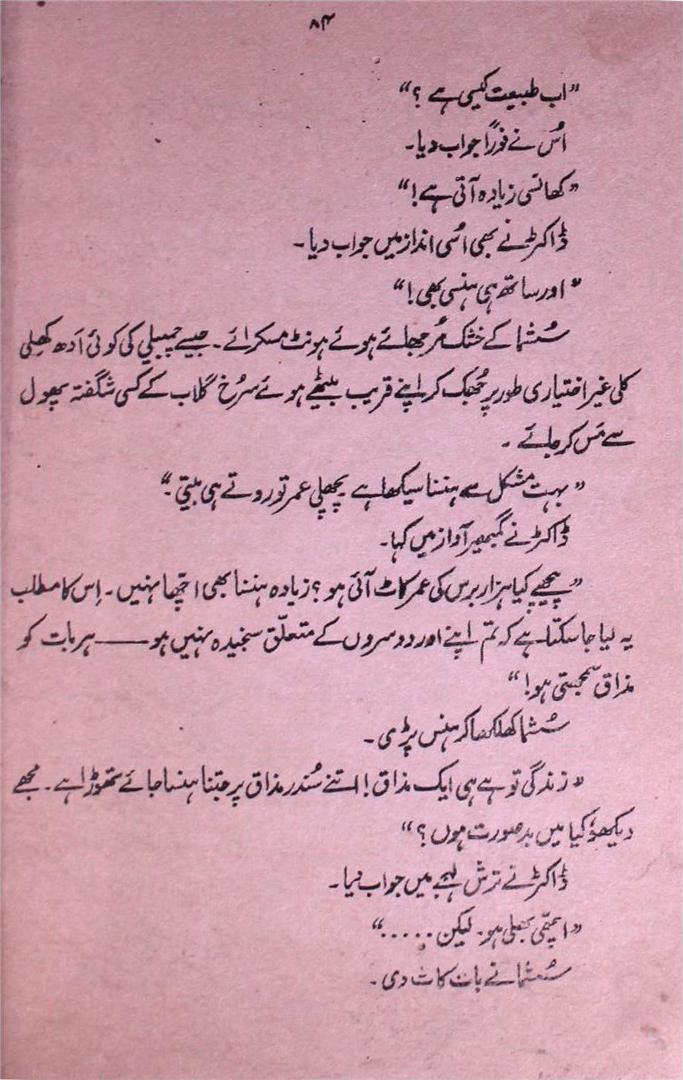 ۸۴
"اب طبیعت کیسی ہے ؟"
اُس نے فوراً جواب دیا۔
"کھانسی زیادہ آتی ہے!"
ڈاکٹر نے بھی اسُی انداز میں جواب دیا۔
"اور ساتھ ہی ہنسی بھی!"
سُشما کے خشک مُرجھائے ہوئے ہونٹ مسکرائے۔ جیسے چمبیلی کی کوئی اَدھ کھِلی
کلی غیر اختیاری طور پر جُھک کر اپنے قریب بیٹھے ہوئے سرُخ گلاب کے کسی شگفتہ پھول
سے مَس کر جائے ۔
"بہت مشکل سے ہنسنا سیکھا ہے پچھلی عمر تو روتے ہی بیتی۔"
ڈاکٹر نے گمبھیر آواز میں کہا۔
"پیچھے کیا ہزار برس کی عمر کاٹ آئی ہو ؟ زیادہ ہنسنا بھی اچھّا نہیں۔ اِس کا مطلب
یہ لیا جا سکتا ہے کہ تم اپنے اور دوسروں کے متعلّق سنجیدہ نہیں ہو —— ہر بات کو
مذاق سمجھتی ہو!"
سُشما کھلکھلا کر ہنس پڑی۔
"زندگی تو ہے ہی ایک مذاق! اتنے سُندر مذاق پر جتنا ہنسا جائے تھوڑا ہے۔ مجھے
دیکھوُ کیا میں بدصورت ہوں ؟"
ڈاکٹر نے ترش لہجے میں جواب دیا۔
"اچھّی بھلی ہو۔ لیکن ....."
سُشما نے بات کاٹ دی۔